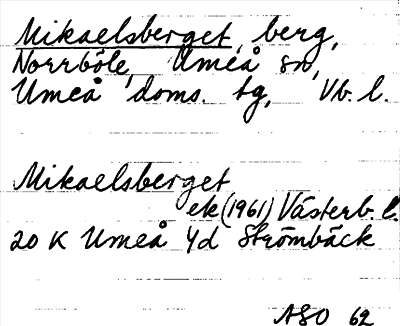 Mikaelsberget, berg,
Norrböle, Umeå sn,
Umeå doms. tg, Vb. l.
Mikaelsberget
ek (1961) Västerb. l.
20 K Umeå 4d Strömbäck
ASO 62